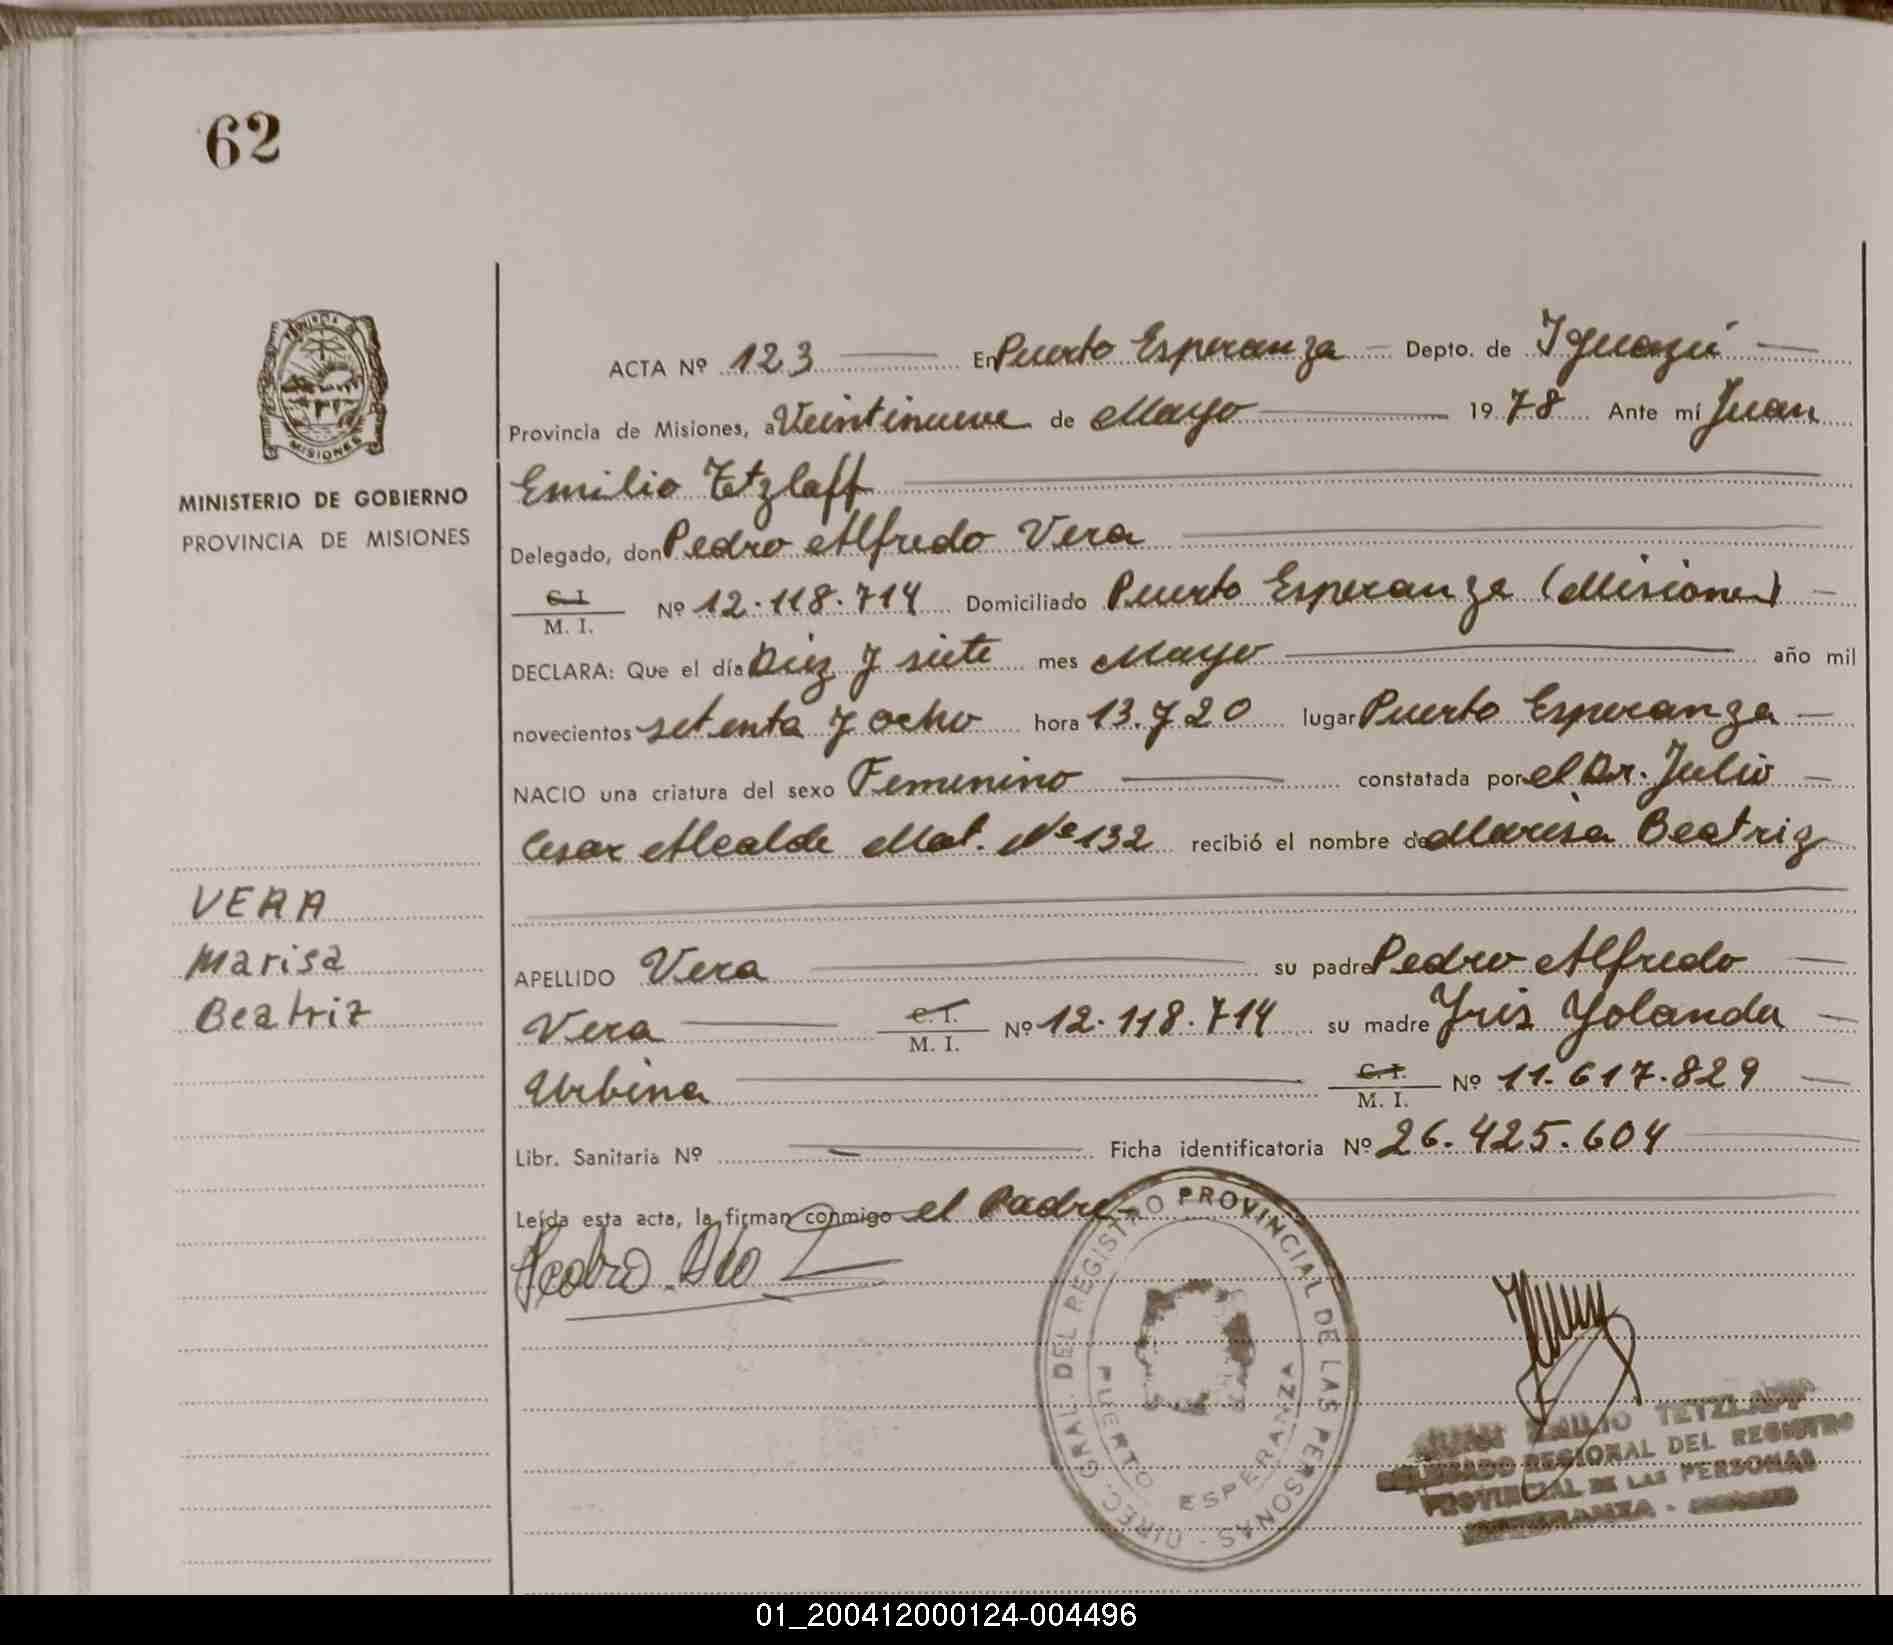 62
PROVINCIA DE
MISIONES
MINISTERIO DE GOBIERNO
PROVINCIA DE MISIONES
VERA
Marisa
Beatriz
ACTA Nº 123 En Puerto Esperanza Depto. de Iguazú
Provincia de Misiones, a Veintinueve de Mayo 1978 Ante mí Juan
Emilio Tetzlaff
Delegado, don Pedro Alfredo Vera
C.I.
M. I. Nº 12.118.714 Domiciliado Puerto Esperanza (Misiones)
DECLARA: Que el día Diez y siete mes Mayo año mil
novecientos setenta y ocho hora 13 y 20 lugar Puerto Esperanza
NACIO una criatura del sexo Femenino constatada por el Dr. Julio
Cesar Alcalde Mat. Nº 132 recibió el nombre de Marisa Beatriz
APELLIDO Vera su padre Pedro Alfredo
Vera C.I. M. I. Nº 12.118.714 su madre Yris Yolanda
Urbina C.I. M. I. Nº 11.617.829
Libr. Sanitaria Nº — Ficha identificatoria Nº 26.425.604
Leída esta acta, la firman conmigo el Padre.-
DIREC. GRAL. DEL REGISTRO PROVINCIAL DE LAS PERSONAS -
PUERTO ESPERANZA
JUAN EMILIO TETZLAFF
DELEGADO REGIONAL DEL REGISTRO
PROVINCIAL DE LAS PERSONAS
ESPERANZA -
01_200412000124-004496